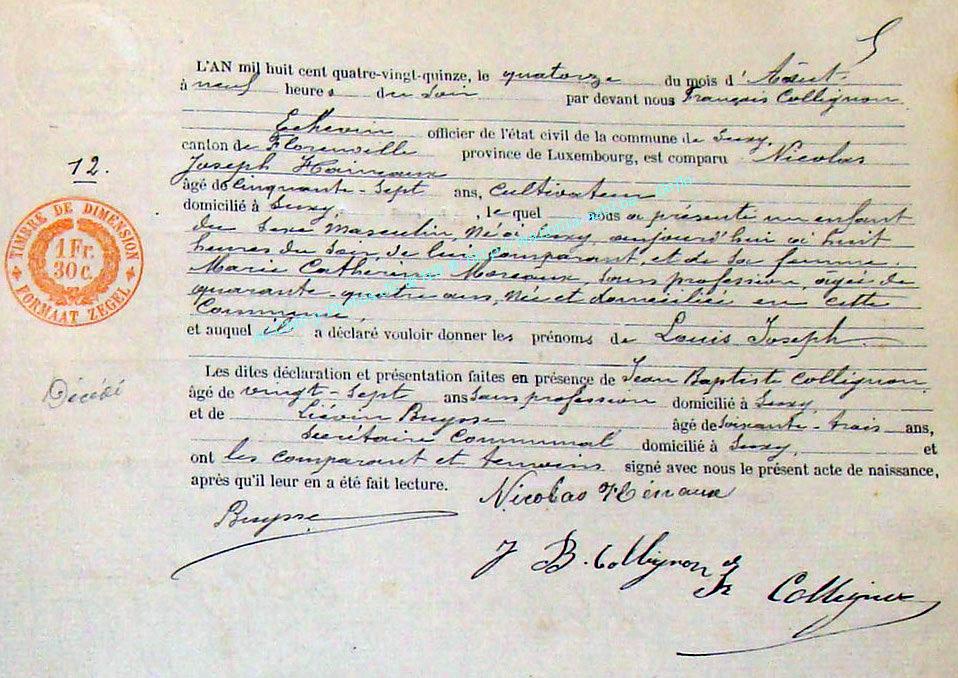 5
L'AN mil huit cent quatre-vingt-quinze, le quatorze du mois d'Août
à neuf heures du soir par devant nous François Collignon
Echevin officier de l'état civil de la commune de Suxy,
canton de Florenville province de Luxembourg, est comparu Nicolas
Joseph Hainaux
âgé de Cinquante-Sept ans, Cultivateur
domicilié à Suxy, , lequel nous a présenté un enfant
du sexe masculin, Né à Suxy, aujourd'hui à huit
heures du soir, de lui comparant, et de sa femme
Marie Catherine Moreaux, sans profession, âgée de
quarante-quatre ans, Née et domiciliée en cette
Commune,
et auquel il a déclaré vouloir donner les prénoms de Louis Joseph
Les dites déclaration et présentation faites en présence de Jean Baptiste Collignon,
âgé de vingt-sept ans sans profession domicilié à Suxy,
et de Liévin Buysse âgé de soixante-trois ans,
Secrétaire Communal domicilié à Suxy, et
ont les comparant et temoins signé avec nous le présent acte de naissance,
après qu'il leur en a été fait lecture.
Nicolas Hénaux
Buysse
J B. Collignon
Fs Collignon
12.
TIMBRE DE DIMENSION
1 Fr.
30 c.
FORMAAT ZEGEL
Décédé